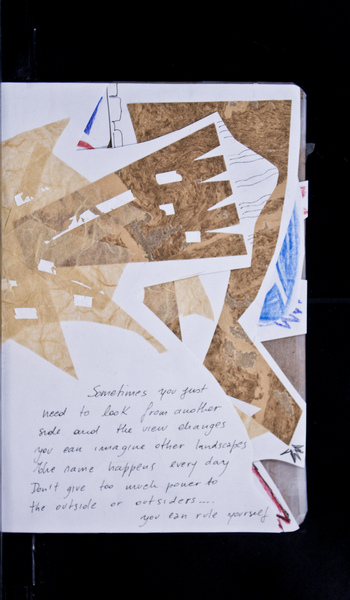 Sometimes you just
need to look from another
side and the view changes
you can imagine other landscapes
The name happens every day
Don't give too much power to
the outside or outsiders....
you can rule yourself